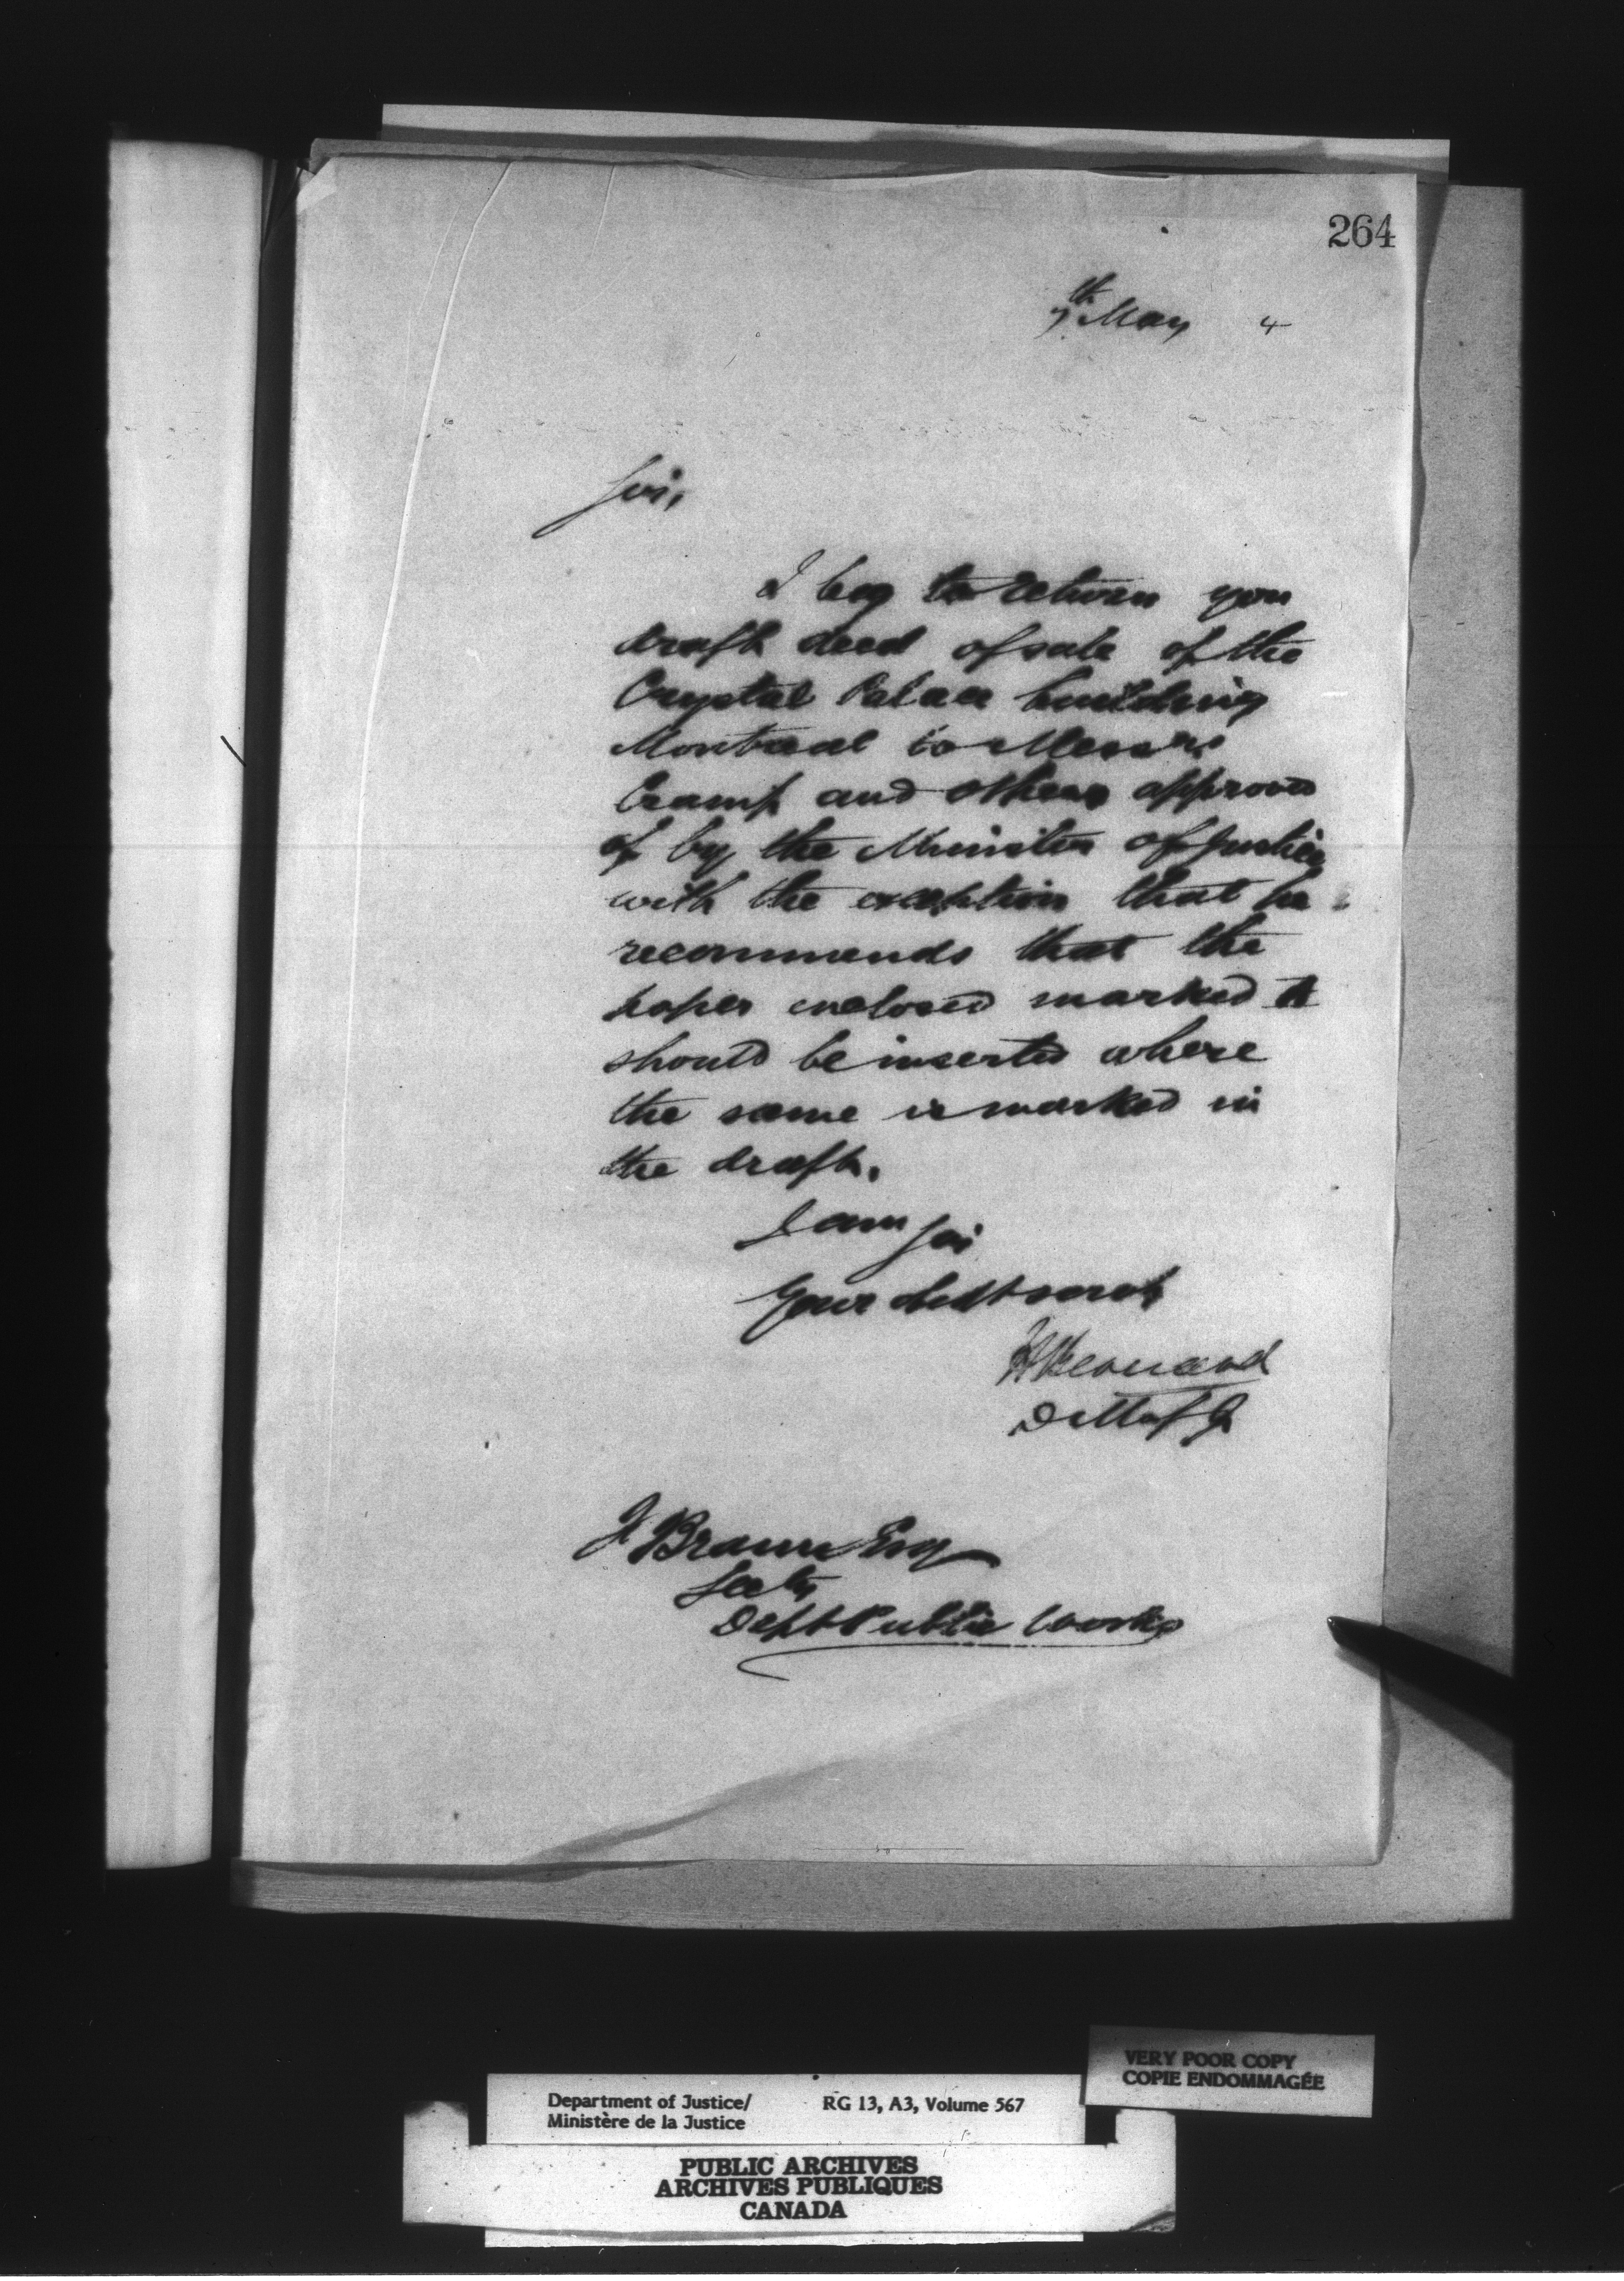 264
7th May 4
Sir,
I beg to return you
draft deed of sale of the
Crystal Palace building
Montreal to Messrs
Cramp and others approved
of by the Minister of Justice
with the exception that he
recommends that the
paper enclosed marked A
should be inserted where
the same is marked in
the draft.
I am Sir
Your obdt servt
H Bernard
D M of J
F Braun Esq
Secty
Dept Public Works
VERY POOR COPY
COPIE ENDOMMAGÉE
Department of Justice/ RG 13, A3, Volume 567
Ministère de la Justice
PUBLIC ARCHIVES
ARCHIVES PUBLIQUES
CANADA